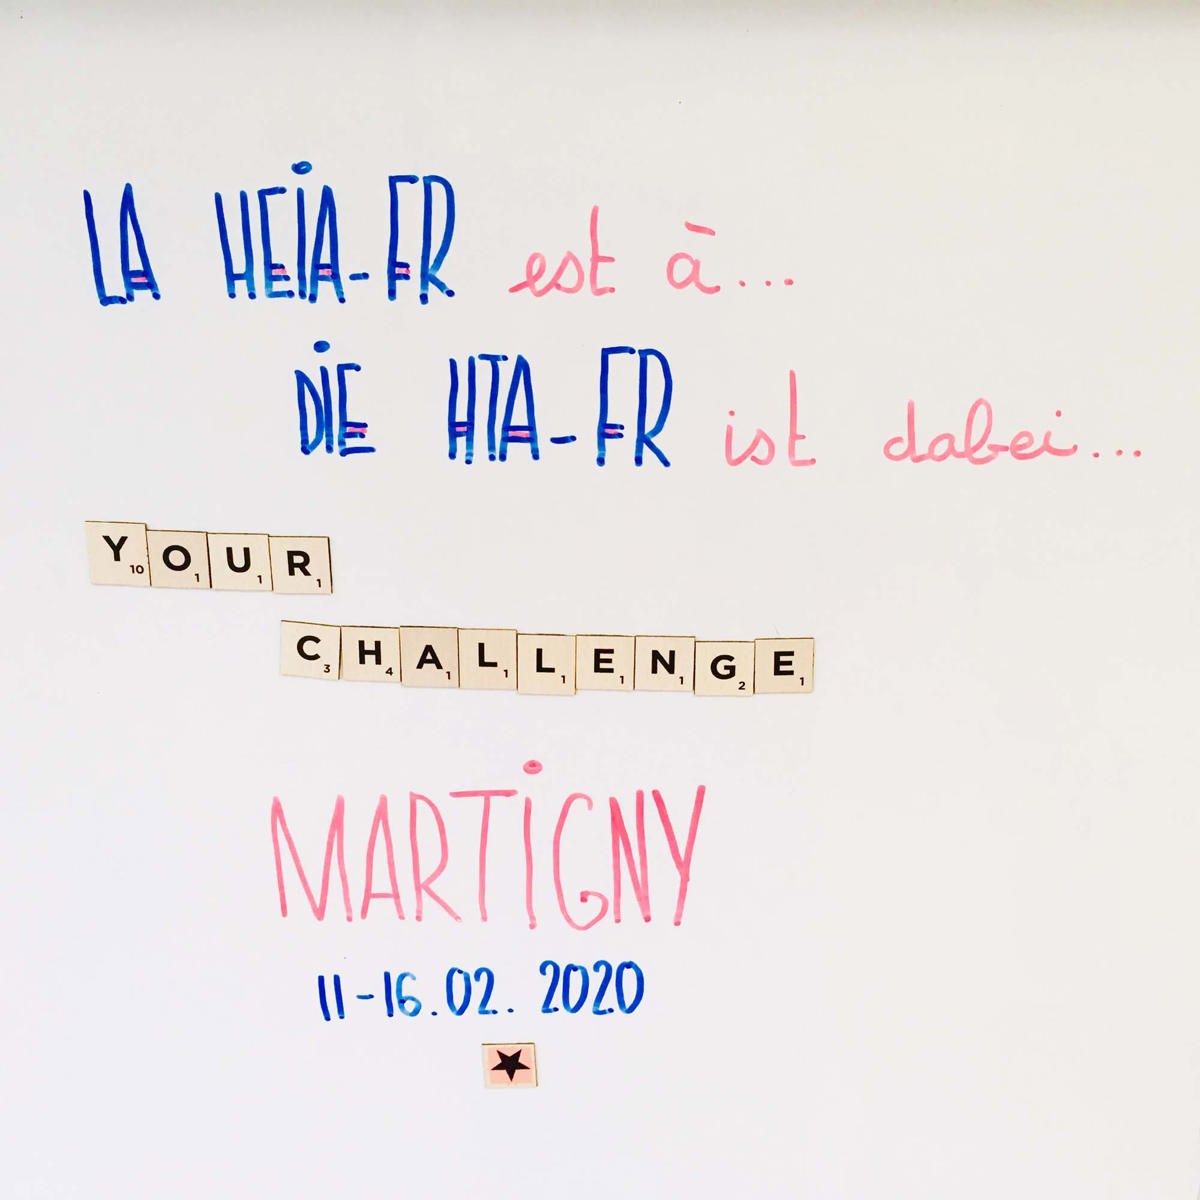 LA HEIA-FR est à...
DIE HTA-FR ist dabei...
Y10 O1 U1 R1
C3 H4 A1 L1 L1 E1 N1 G2 E1
MARTIGNY
11-16.02.2020